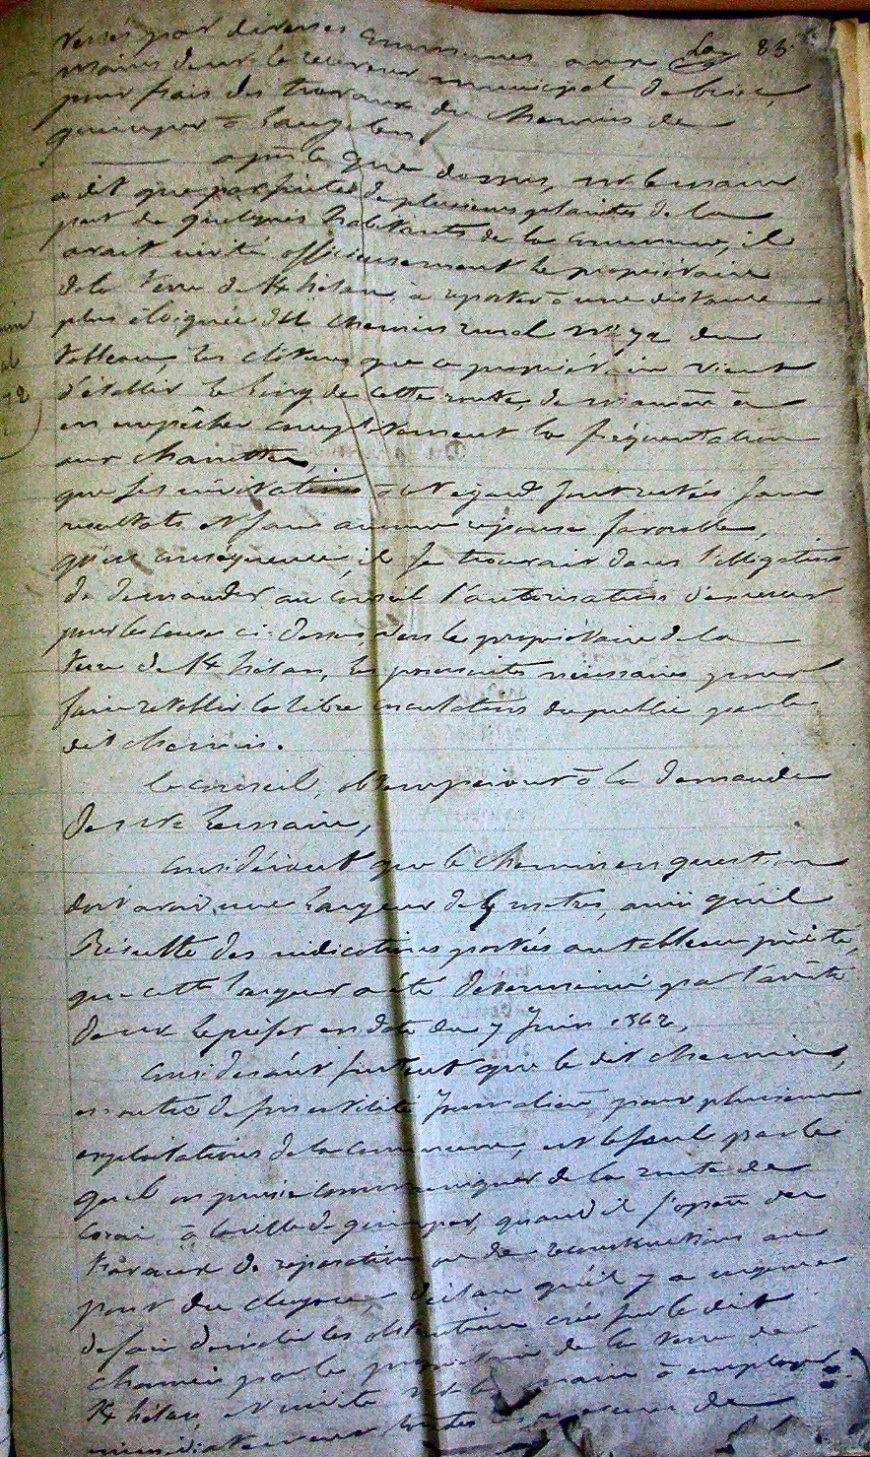 83.
versés par diverses communes aux
mains de Mr le receveur municipal de briec,
pour frais des travaux du chemin de
quimper à Langolen /
après que dessus, Mr le maire
a dit que par suite de plusieurs plaintes de la
part de quelques habitants de la commune, il
avait invité officieusement le propriétaire
de la terre de à reporter à une distance
plus éloignée du chemin rural no 92 du
tableau, les clôtures que ce propriétaire vient
d'établir le long de cette route, de manière à
en empêcher complètement la fréquentation
aux charrettes,
que ses invitations à cet égard sont restées sans
resultats et sans aucune réponse favorable,
qu'en conséquence, il se trouvait dans l'obligation
de demander au conseil l'autorisation d'exercer
pour les causes ci-dessus, vers le propriétaire de la
terre de les poursuites nécessaires pour
faire rétablir la libre circulation du public par le
dit chemin.
Le conseil, obtempérant à la demande
de Mr le maire,
considérant que le chemin en question
doit avoir une largeur de mètres, ainsi qu'il
Résulte des indications portées au tableau précité,
que cette largeur a été déterminée par l'arrêté
de Mr le préfet en date du 7 Juin 1862,
considérant surtout que le dit chemin,
en outre de son utilité journalière pour plusieurs
exploitations de la commune, est le seul par le
quel on puisse communiquer de la route de
Corai à la ville de quimper, quand il s'opère des
travaux de réparation ou de reconstruction au
pont du déclare qu'il y a urgence
de faire démolir les obstructions créées sur le dit
chemin par le propriétaire de la terre de
et invite Mr le maire à employer
immédiatement toutes mesures de